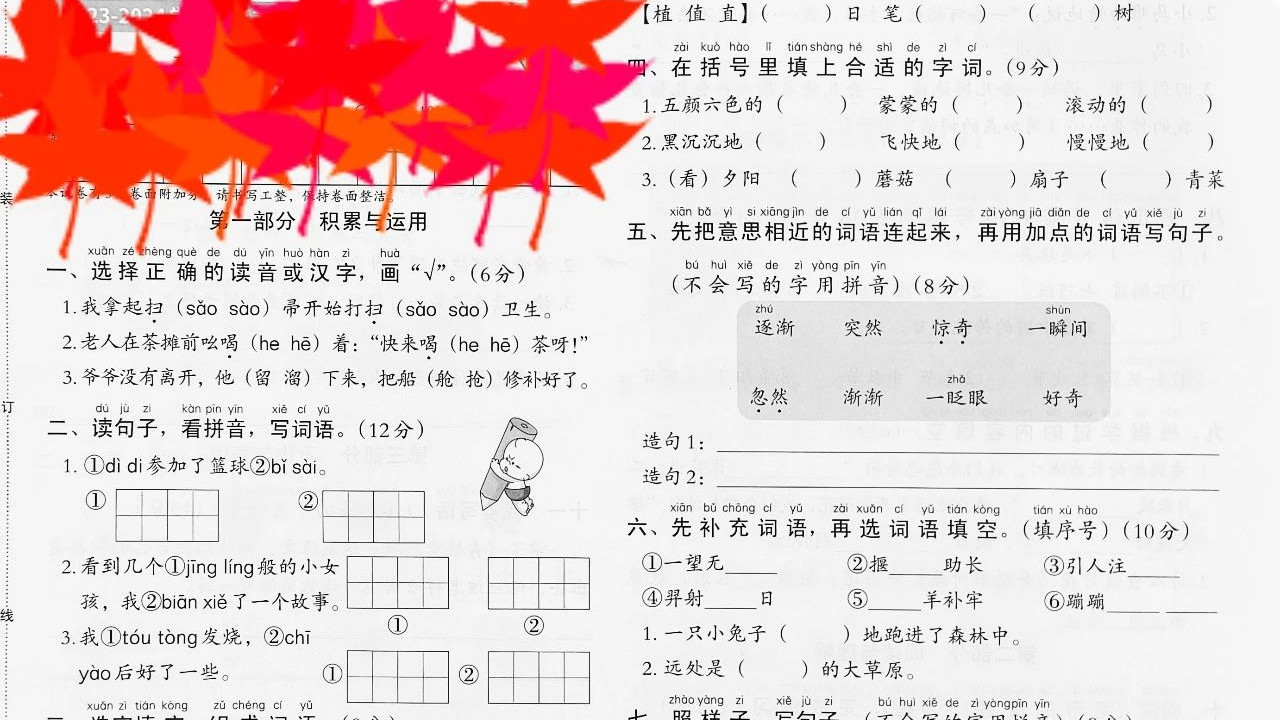 装
订
线
卷面附加分，请书写工整，保持卷面整洁。
第一部分 积累与运用
xuǎn zé zhèng què de dú yīn huò hàn zì huà
一、选择正确的读音或汉字，画“√”。（6分）
1.我拿起扫（sǎo sào）帚开始打扫（sǎo sào）卫生。
2.老人在茶摊前吆喝（he hē）着：“快来喝（he hē）茶呀！”
3.爷爷没有离开，他（留 溜）下来，把船（舱 抢）修补好了。
dú jù zi kàn pīn yīn xiě cí yǔ
二、读句子，看拼音，写词语。（12分）
1.①dì di参加了篮球②bǐ sài。
① ②
2.看到几个①jīng líng般的小女
孩，我②biān xiě了一个故事。
① ②
3.我①tóu tòng发烧，②chī
yào后好了一些。
① ②
xuǎn zì tián kòng zǔ chéng cí yǔ
【植 值 直】（ 日 笔（ ） （ ）树
zài kuò hào lǐ tián shàng hé shì de zì cí
四、在括号里填上合适的字词。（9分）
1.五颜六色的（ ） 蒙蒙的（ ） 滚动的（ ）
2.黑沉沉地（ ） 飞快地（ ） 慢慢地（ ）
3.（看）夕阳 （ ）蘑菇 （ ）扇子 （ ）青菜
xiān bǎ yì si xiāng jìn de cí yǔ lián qǐ lái zài yòng jiā diǎn de cí yǔ xiě jù zi
五、先把意思相近的词语连起来，再用加点的词语写句子。
bú huì xiě de zì yòng pīn yīn
（不会写的字用拼音）（8分）
zhú shùn
逐渐 突然 惊奇 一瞬间
zhǎ
忽然 渐渐 一眨眼 好奇
造句1：
造句2：
xiān bǔ chōng cí yǔ zài xuǎn cí yǔ tián kòng tián xù hào
六、先补充词语，再选词语填空。（填序号）（10分）
①一望无____ ②揠____助长 ③引人注____
④羿射____日 ⑤____羊补牢 ⑥蹦蹦____ ____
1.一只小兔子（ ）地跑进了森林中。
2.远处是（ ）的大草原。
zhào yàng zi xiě jù zi bú huì xiě de zì yòng pīn yīn